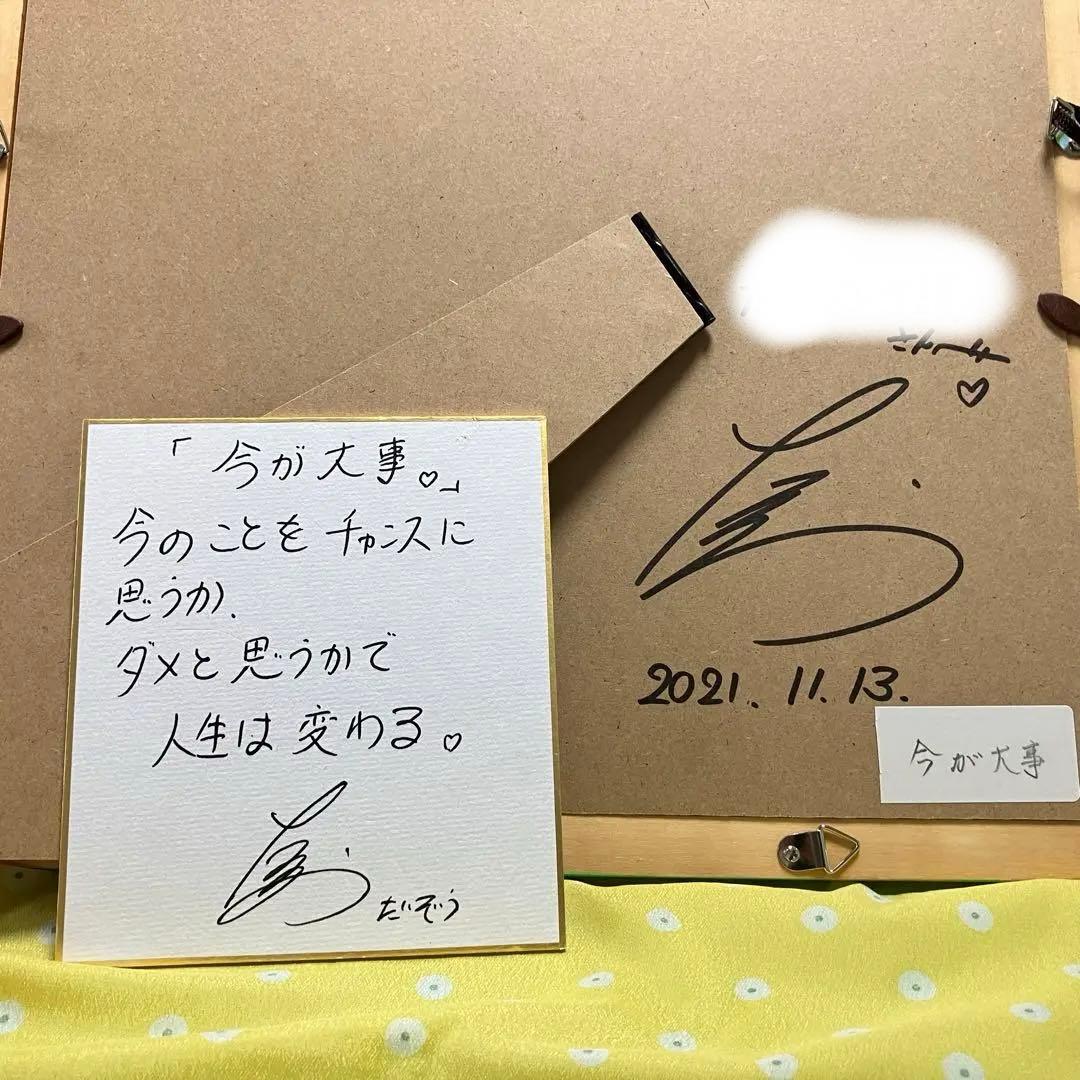 「今が大事♡」
今のことをチャンスに
思うか、
ダメと思うかで
人生は変わる♡
だいぞう
さんへ
♡
2021. 11. 13.
今が大事